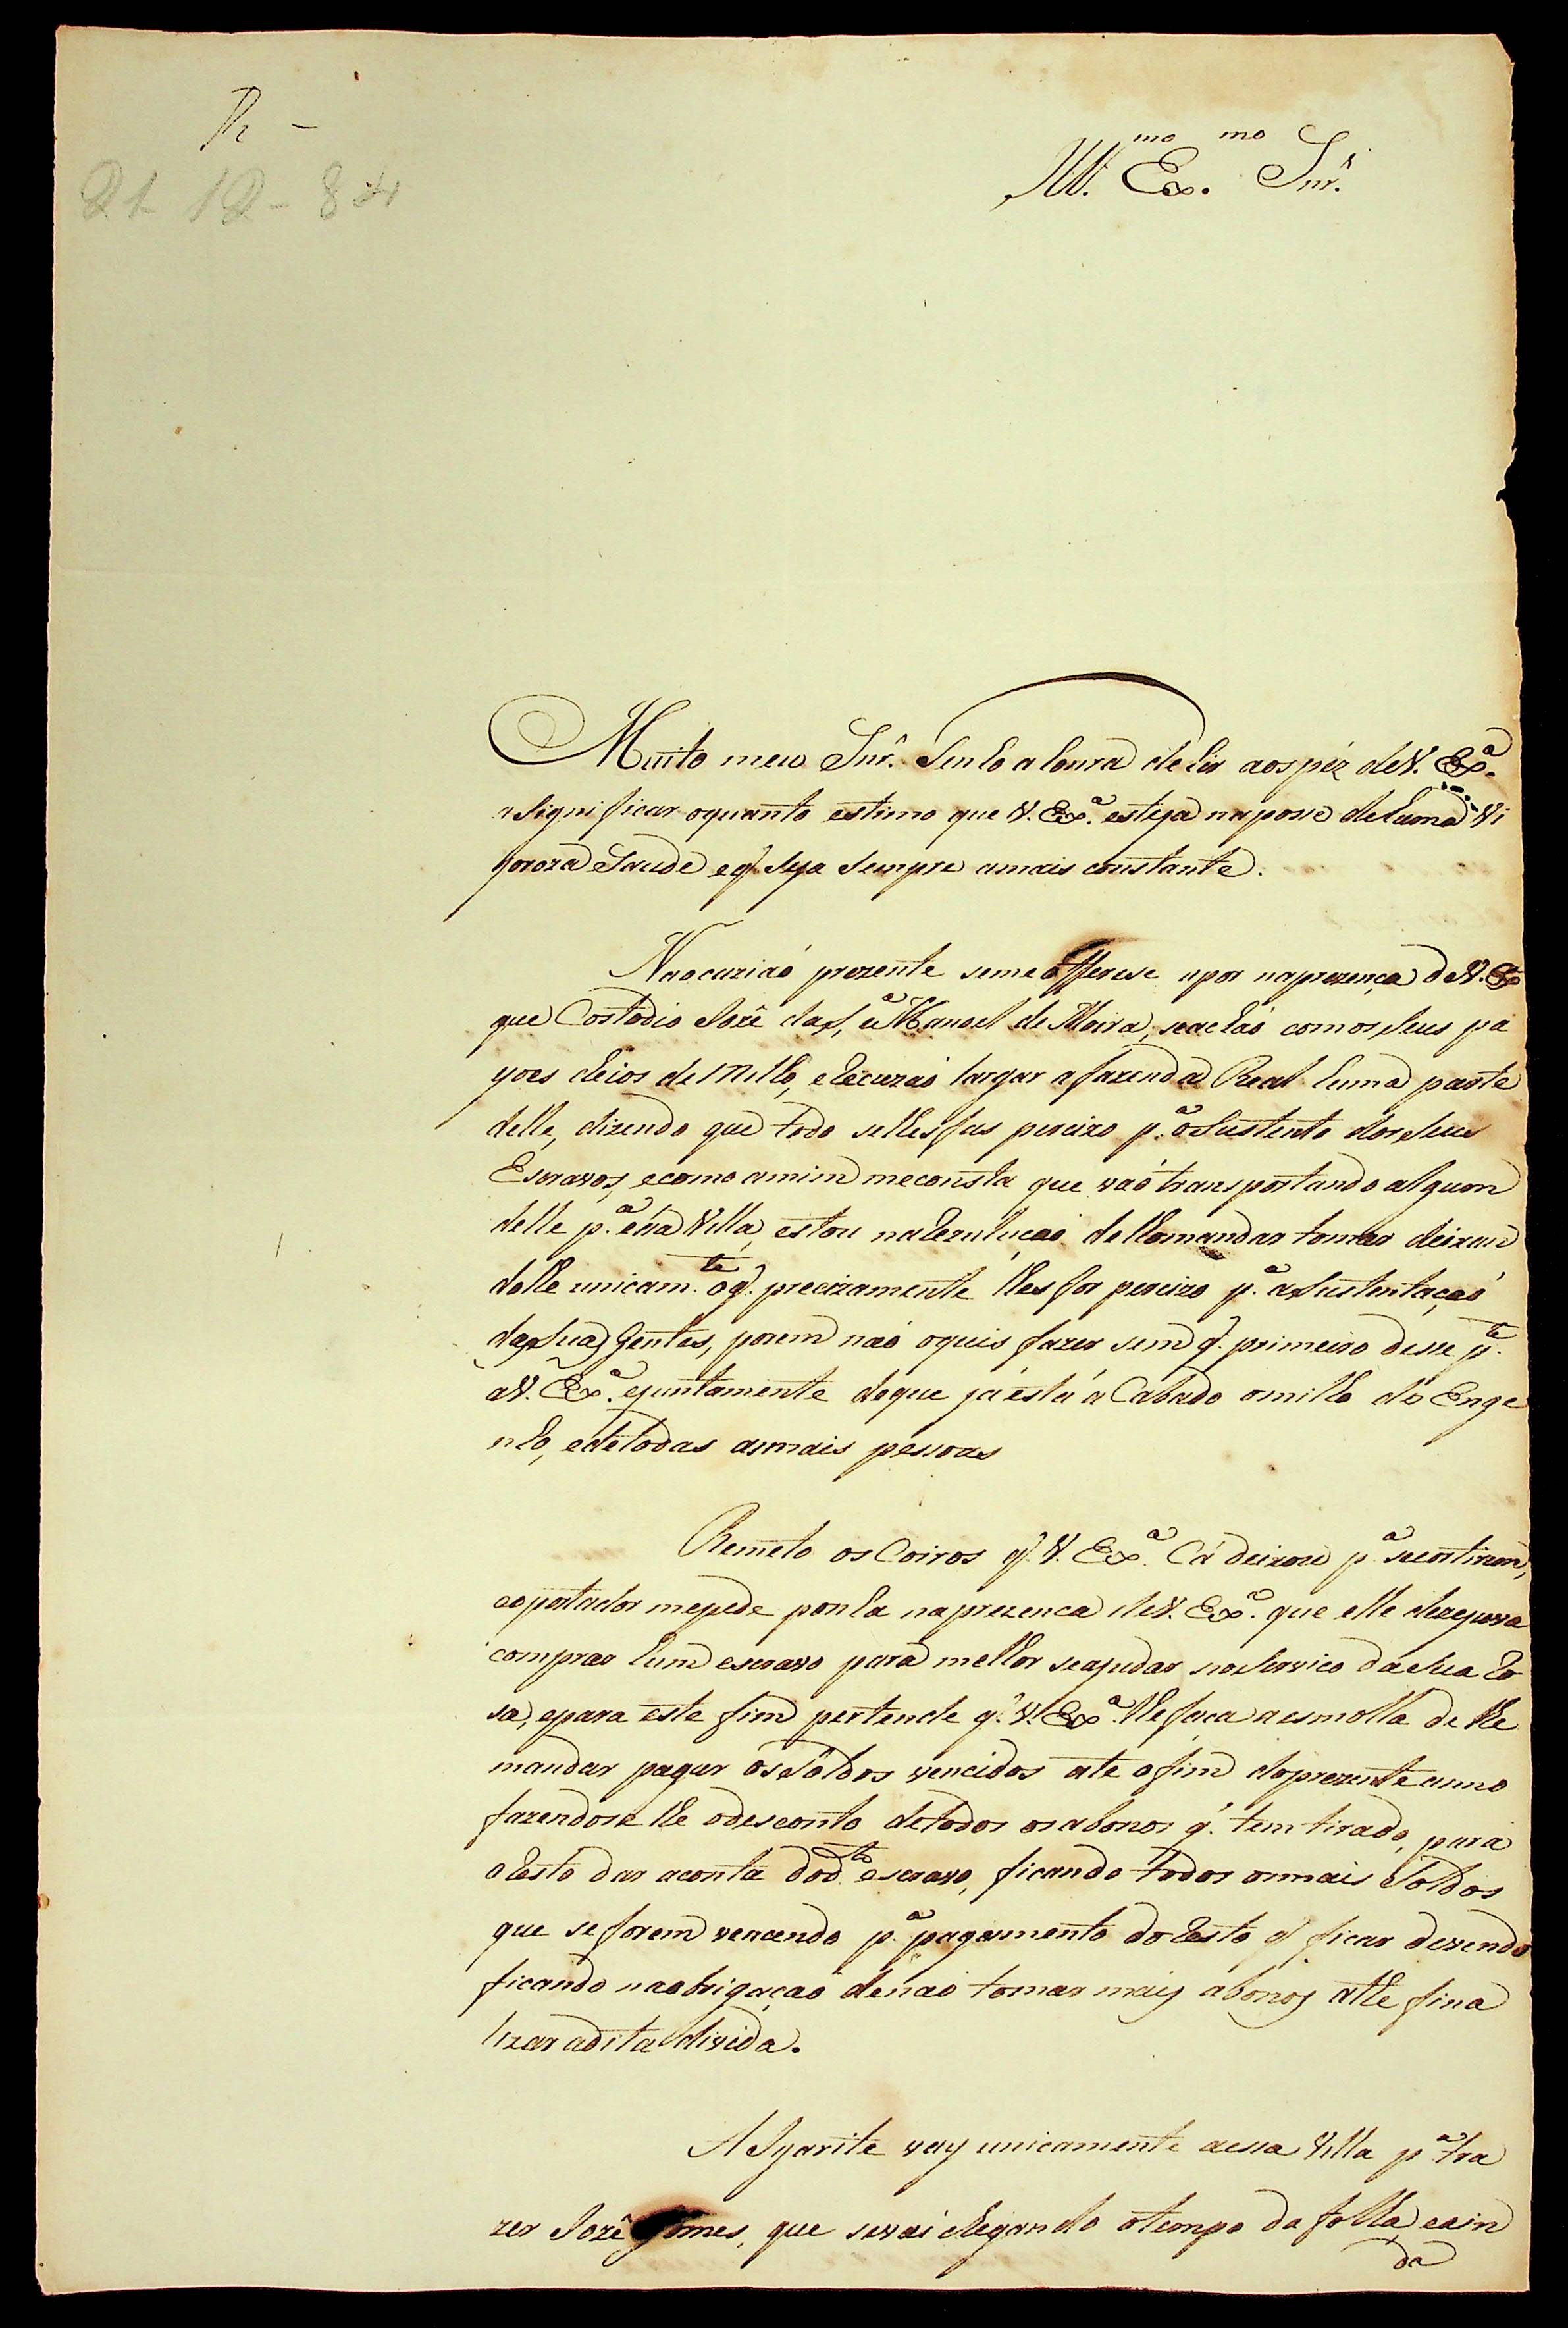 R -
21 12 - 84
Ill.mo Ex.mo Snr.
Muito meu Snr. Tenho a honra de hir aos péz de V. Ex.a
a Significar oquanto estimo que V. Ex.a esteja na posse de huma Vi
goroza Saude eq. Seja Sempre amais constante.
Naocaziaó prezente seme Offerese apor naprezença de V. Ex
que Costodio Jozê daS.a e Manoel de Moira, seachaó comos Seus pa
yoes cheios de Milho, e Recuzaó largar a fazenda Real huma parte
delle, dizendo que todo selhesfas percizo p.a oSustento dos Seus
Escravos, ecomo amim meconsta que vaó transportando algum
delle p.a essa Villa, estou na Rezuluçaó delho mandar tomar deixan
dolhe unicam.te oq. precizamente lhes for percizo p.a aSustentaçaó
dasSuas Gentes, porem naó oquis fazer sem q. primeiro desse p.te
aV. Ex.a ejuntamente deque já está a Cabado omilho do Enge
nho, edetodas asmais pessoas
Remeto os Coiros q. V. Ex.a Cá deixou p.a secortirem,
eoportador mepede ponha naprezenca de V. Ex.a que elle dezejava
comprar hum escravo para melhor seajudar noServico daSua Ro
sa, epara este fim pertende q. V. Ex.a lhefaca aesmolla de lhe
mandar pagar osSoldos vencidos ate ofim doprezente anno
fazendose lhe odesconto detodos osabonos q. tem tirado, para
oResto dar aconta dod.to escravo, ficando todos osmais Soldos
que seforem vencendo p.a pagamento do Resto q. ficar devendo
ficando naobrigaçaó denaó tomar mais abonos athe fina
lizar adita divida.
A Igarite vay unicamente aessa Villa p.a tra
zer Jozê Gomes, que sevai chegando otempo da folha, eain
da